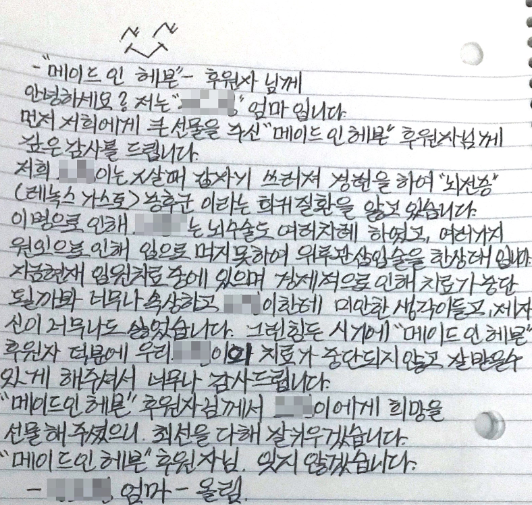 -"메이드 인 헤븐"- 후원자 님께
안녕하세요? 저는 " " 엄마 입니다.
먼저 저희에게 큰 선물을 주신 "메이드 인 헤븐" 후원자님께
깊은 감사를 드립니다.
저희 이는 살때 갑자기 쓰러져 경련을 하여 "뇌전증"
(레녹스 가스토> 증후군 이라는 희귀질환을 앓고 있습니다.
이병으로 인해 는 뇌수술도 여러차례 하였고, 여러가지
원인으로 인해 입으로 먹지못하여 위루관삽입술을 한상태 입니다.
지금현재 입원치료 중에 있으며 경제적으로 인해 치료가 중단
될까봐 너무나 속상하고 이한테 미안한 생각이들고, 제자
신이 너무나도 싫었습니다. 그런힘든 시기에 "메이드 인 헤븐"
후원자 덕분에 우리 이의 치료가 중단되지 않고 잘 받을수
있게 해주셔서 너무나 감사드립니다.
"메이드인 헤븐" 후원자님께서 이에게 희망을
선물해 주셨으니. 최선을 다해 잘키우겠습니다.
"메이드인 헤븐" 후원자님. 잊지 않겠습니다.
- 엄마 - 올림.